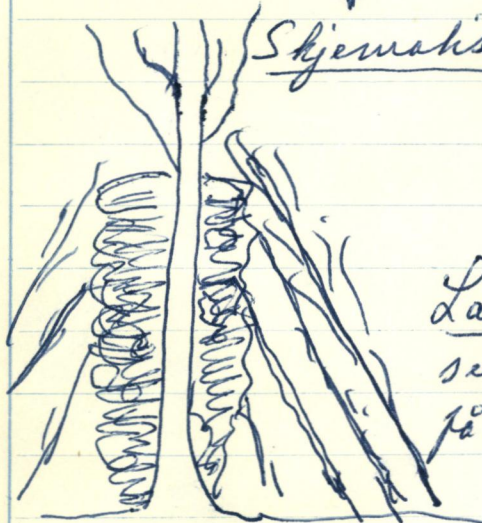 Skjematis
La
se
på